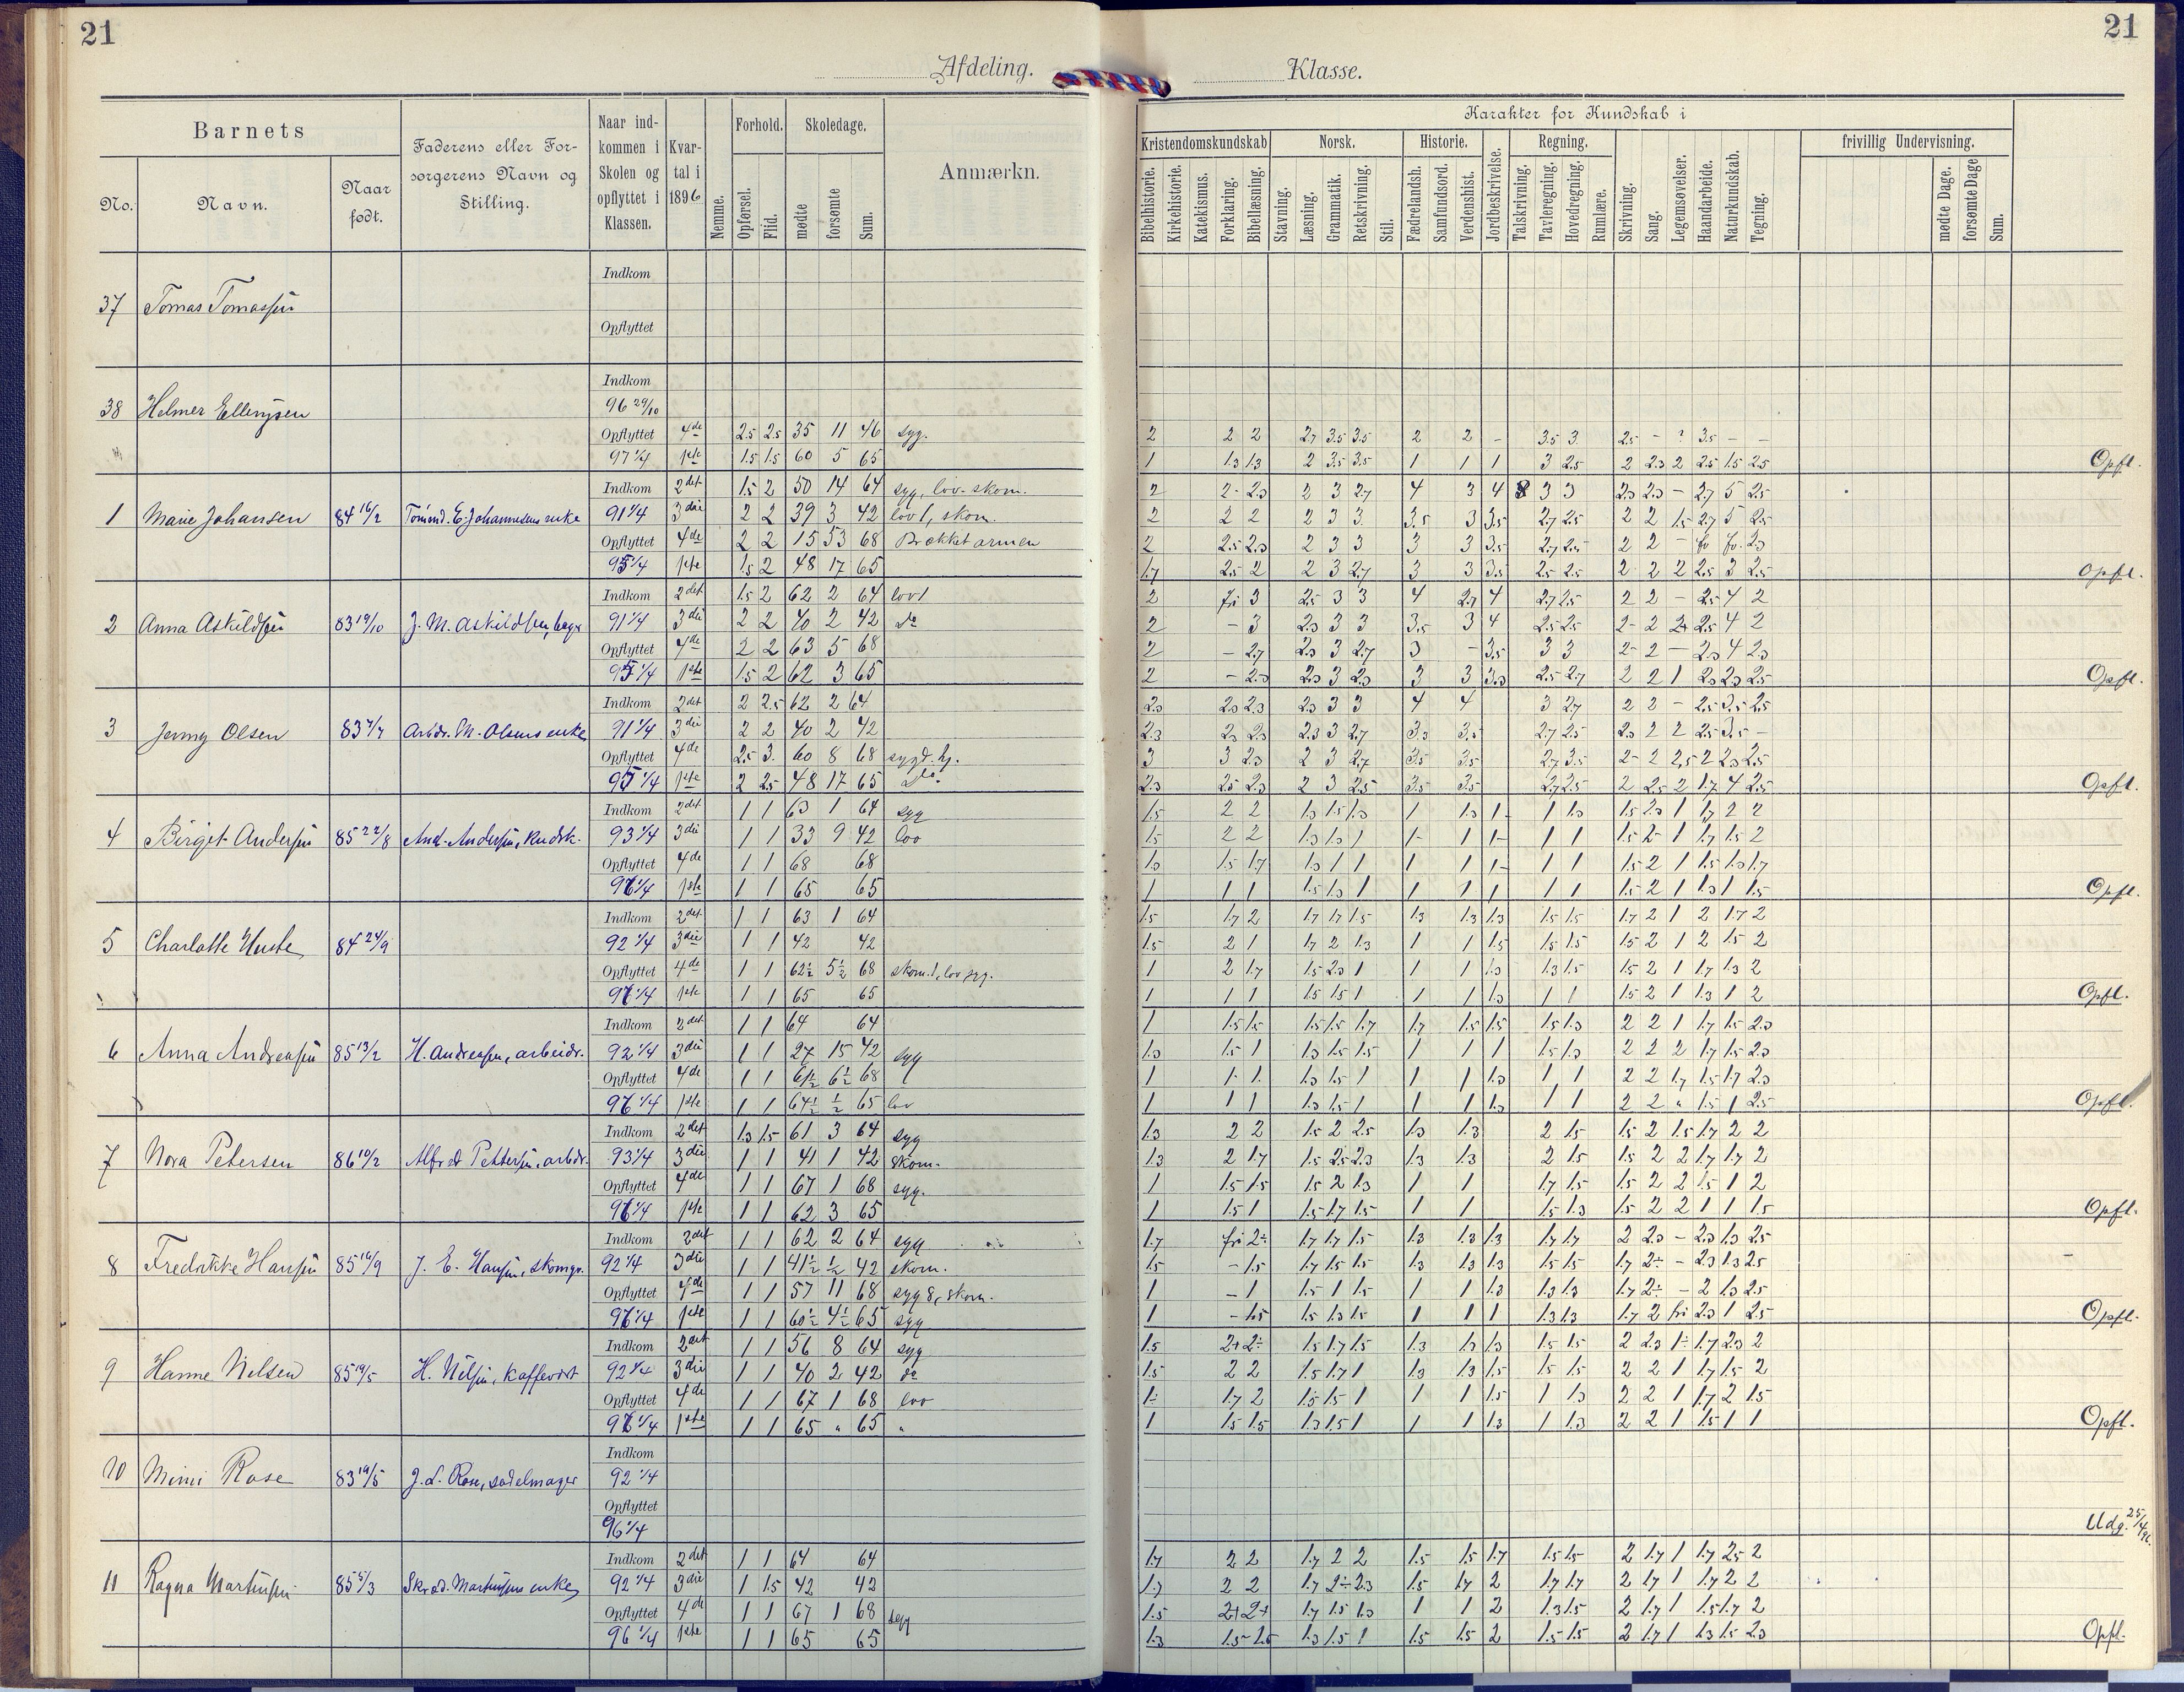 21
21
Afdeling.
Klasse.
Barnets
No.
Navn.
Naar født.
Faderens eller Forsorgerens Navn og Stilling.
Naar indkommen i Skolen og opflyttet i Klassen.
Kvartal i 1896
Nemme.
Forhold.
Opførsel.
Flid.
Skoledage.
mødte
forsømte
Sum.
Anmærkn.
Karakter for Kundskab i
Kristendomskundskab
Bibelhistorie.
Kirkehistorie.
Katekismus.
Forklaring.
Bibellæsning.
Norsk.
Stavning.
Læsning.
Grammatik.
Retskrivning.
Stil.
Historie.
Fædrelandsh.
Samfundsord.
Verdenshist.
Jordbeskrivelse.
Regning.
Talskrivning.
Tavleregning.
Hovedregning.
Rumlære.
Skrivning.
Sang.
Legemsøvelser.
Haandarbeide.
Naturkundskab.
Tegning.
frivillig Undervisning.
mødte Dage.
forsømte Dage
Sum.
37 Tomas Tomassen
Indkom
Opflyttet
38 Helmer Ellingsen
Indkom
96 29/10
Opflyttet 4de 2.5 2.5 35 11 46 syg. 2 2 2 2.7 3.5 3.5 2 2 - 3.5 3 2.5 - ? 3.5 - -
97 1/4 1ste 1.5 1.5 60 5 65 1 1.3 1.3 2 3.5 3.5 1 1 1 3 2.5 2 2.3 2 2.5 1.5 2.5 Opfl.
1 Marie Johansen 84 16/2 Tømmd. E. Johannesens enke
Indkom 2det 1.5 2 50 14 64 syg, lov. skom. 2 2- 2.3 2 3 2.7 4 3 4 3 3 2.3 2.3 - 2.7 5 2.5
91 1/4 3die 2 2 39 3 42 lov 1, skom. 2 2 2 2 3 3 3.5 3 3.5 2.7 2.5 2 2 1.5 2.7 5 2.5
Opflyttet 4de 2 2 15 53 68 Brækket armen 2 2.5 2.3 2 3 3 3 3 3.5 2.7 2.5 2 2 - fr fr. 2.3
95 1/4 1ste 1.5 2 48 17 65 1.7 2.5 2 2 3 2.7 3 3 3.5 2.5 2.5 2 2 2 2.5 3 2.5 Opfl.
2 Anna Askildsen 83 19/10 J. M. Askildsen, bager
Indkom 2det 1.5 2 62 2 64 lov 1 2 fri 3 2.5 3 3 4 2.7 4 2.7 2.5 2 2 - 2.5 4 2
91 1/4 3die 2 2 40 2 42 Do 2 - 3 2.3 3 3 3.5 3 4 2.5 2.5 2- 2 2+ 2.5 4 2
Opflyttet 4de 2 2 63 5 68 2 - 2.7 2.3 3 2.7 3 - 3.5 3 3 2- 2 - 2.3 4 2.3
95 1/4 1ste 1.5 2 62 3 65 2 - 2.3 2.3 3 2.3 3 3 3.3 2.5 2.7 2 2 1 2.3 2.3 2.5 Opfl.
3 Jenny Olsen 83 7/7 Arbdr. M. Olsens enke
Indkom 2det 2 2.5 62 2 64 2.3 2.3 2.3 2.3 3 3 4 4 3 2.7 2 2 - 2.5 3.5 2.5
91 1/4 3die 2 2 40 2 42 2.3 2.3 2.3 2.3 3 2.7 3.3 3.5 2.7 2.5 2.3 2 2 2.5 3.5 -
Opflyttet 4de 2.5 3. 60 8 68 sygd. hj. 3 3 2.3 2 3 2.7 3.5 3.5 2.7 3.5 2- 2 2,5 2 2.3 2.5
95 1/4 1ste 2 2.5 48 17 65 Do. 2.3 2.5 2.3 2 3 2.5 3.5 3.5 2.7 2.5 2 2.5 2 1.7 4 2.5 Opfl.
4 Birget Andersen 85 22/8 And. Andersen, Kudsk.
Indkom 2det 1 1 63 1 64 syg 1.5 2 2 1.3 1.5 1.3 1 1.3 1- 1 1.3 1.5 2.3 1 1.7 2 2
93 1/4 3die 1 1 33 9 42 lov 1.5 2 2 1.3 1.3 1 1- 1 1- 1 1 1.5 2- 1 1.7 1.5 2
Opflyttet 4de 1 1 68 68 1.3 1.5 1.7 1.3 1 1 1 1 1- 1 1 1.5 2 1 1.5 1.3 1.7
96 1/4 1ste 1 1 65 65 1 1 1 1.5 1.3 1 1 1 1 1 1 1.5 2 1 1.3 1 1.5 Opfl.
5 Charlotte Huste 84 24/9
Indkom 2det 1 1 63 1 64 1.5 1.7 2 1.7 1.7 1.5 1.3 1.3 1.3 1.5 1.5 1.7 2 1 2 1.7 2
92 1/4 3die 1 1 42 42 1.5 2 1 1.7 2 1.3 1 1 1.5 1.5 1.5 1.5 2 1 2 1.5 2
Opflyttet 4de 1 1 62½ 5½ 68 skom. 1, lov syg. 1 2 1.7 1.5 2.3 1 1 1 1.3 1.3 1.5 1.5 2 1 1.7 1.3 2
96 1/4 1ste 1 1 65 65 1 1 1 1.5 1.5 1 1 1 1.3 1 1 1.5 2 1 1.3 1 2 Opfl.
6 Anna Andreasen 85 13/2 H. Andreasen, arbeidr.
Indkom 2det 1 1 64 64 1 1.5 1.5 1.5 1.5 1.7 1.7 1.5 1.5 1.5 1.3 2 2 1 1.7 1.5 2.3
92 1/4 3die 1 1 27 15 42 syg 1.3 1.5 1 1.3 1.5 1.5 1 1 1 1.5 1.3 2 2 2 1.7 1.5 2.3
Opflyttet 4de 1 1 61½ 6½ 68 1 1. 1. 1.3 1.5 1 1 1 1.3 1 1 2 2 1.7 1.5 1.7 2.3
96 1/4 1ste 1 1 64½ ½ 65 lov 1 1 1 1.3 1.5 1 1 1 1.3 1 1 2 2 " 1.5 1 2.5 Opfl.
7 Nora Petersen 86 10/2 Alfred Pettersen, arbdr.
Indkom 2det 1.3 1.5 61 3 64 syg 1.3 2 2 1.5 2 2.5 1.3 1.3 2 1.5 1.5 2 1.5 1.7 2 2
93 1/4 3die 1 1 41 1 42 skom. 1.3 2 1.7 1.5 2.5 2.3 1.3 1.3 2 1.5 1.5 2 2 1.7 1.7 2
Opflyttet 4de 1 1 67 1 68 syg. 1 1.5 1.5 1.5 2 1.3 1 1 1.7 1.5 1.5 2 2 1.5 1 2
96 1/4 1ste 1 1 62 3 65 1 1.5 1 1.5 1.7 1.5 1 1 1.5 1.3 1.5 2 2 1 1 1.5 Opfl.
8 Fredrikke Hansen 85 16/9 J. E. Hansen, skomgr.
Indkom 2det 1 1 62 2 64 syg 1.7 fri 2÷ 1.7 1.7 1.5 1.3 1.3 1.3 1.7 1.7 2 2.3 - 2.3 1.3 2.5
92 1/4 3die 1 1 41½ ½ 42 skom. 1.5 - 1.5 1.7 1.5 1.5 1.3 1.3 1.3 1.5 1.5 1.7 2÷ - 2.3 1.3 2.5
Opflyttet 4de 1 1 57 11 68 syg 8, skom. 1 - 1 1.5 1 1.5 1 1 1.3 1.3 1.3 1.7 2÷ - 2 1.3 2.5
96 1/4 1ste 1 1 60½ 4½ 65 syg 1 - 1.5 1.5 1.3 1.5 1 1 1 1.3 1.3 1.7 2 fri 2.3 1 2.5 Opfl.
9 Hanne Nelsen 85 19/5 H. Nilsen, Kaffevert
Indkom 2det 1 1 56 8 64 syg 1.5 2+ 2÷ 1.5 1.7 1.5 1.3 1.3 1.3 1.5 1.5 2 2.3 1÷ 1.7 2.3 2
92 1/4 3die 1 1 40 2 42 do 1.5 2 2 1.5 1.7 1 1.3 1.3 1.5 1.5 1.5 2 2 1 1.7 1.5 2
Opflyttet 4de 1 1 67 1 68 lov 1÷ 1.7 2 1.5 1.5 1 1 1 1.5 1 1.3 2 2 1 1.7 2 1.5
96 1/4 1ste 1 1 65 " 65 " 1 1.5 1.5 1.3 1.5 1 1 1 1.3 1 1.3 2 2 1 1.5 1 1 Opfl.
10 Mimi Rose 83 19/5 J. L. Rose, sadelmager
Indkom
92 1/4
Opflyttet
96 1/4 Udg. 25/4 96.
11 Ragna Martinsen 85 5/3 Skræd. Martinsens enke
Indkom 2det 1 1 64 64 1.7 2 2 1.7 2 2 1.5 1.5 1.7 1.5 1.5 2 1.7 1 1.7 2.5 2
92 1/4 3die 1 1.5 42 42 1.7 2 2 1.7 2÷ 2.3 1.5 1.7 2 1.7 1.7 2 1.7 1 1.7 2 2
Opflyttet 4de 1 1 67 1 68 syg 1.5 2+ 2+ 1.7 1.5 1.3 1 1 2 1.3 1.5 2 1.7 1 1.5 1.7 2
96 1/4 1ste 1 1 65 65 1.3 1.5- 1.5 1.3 1.5 1 1.5 1.5 2 1.5 1.5 2 1.7 1 1.3 1.5 2.3 Opfl.